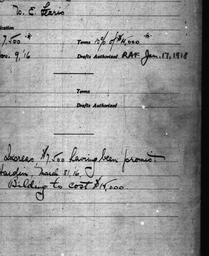 W. E. Faris
7,500 00 Terms 10% of $14,000
Nov. 9, '16 Drafts Authorized RAF Jan. 17, 1918
Terms
Drafts Authorized
Increas. $7,500 having been promis.
Hardin, March 31, 16.
Building to cost $14,000.